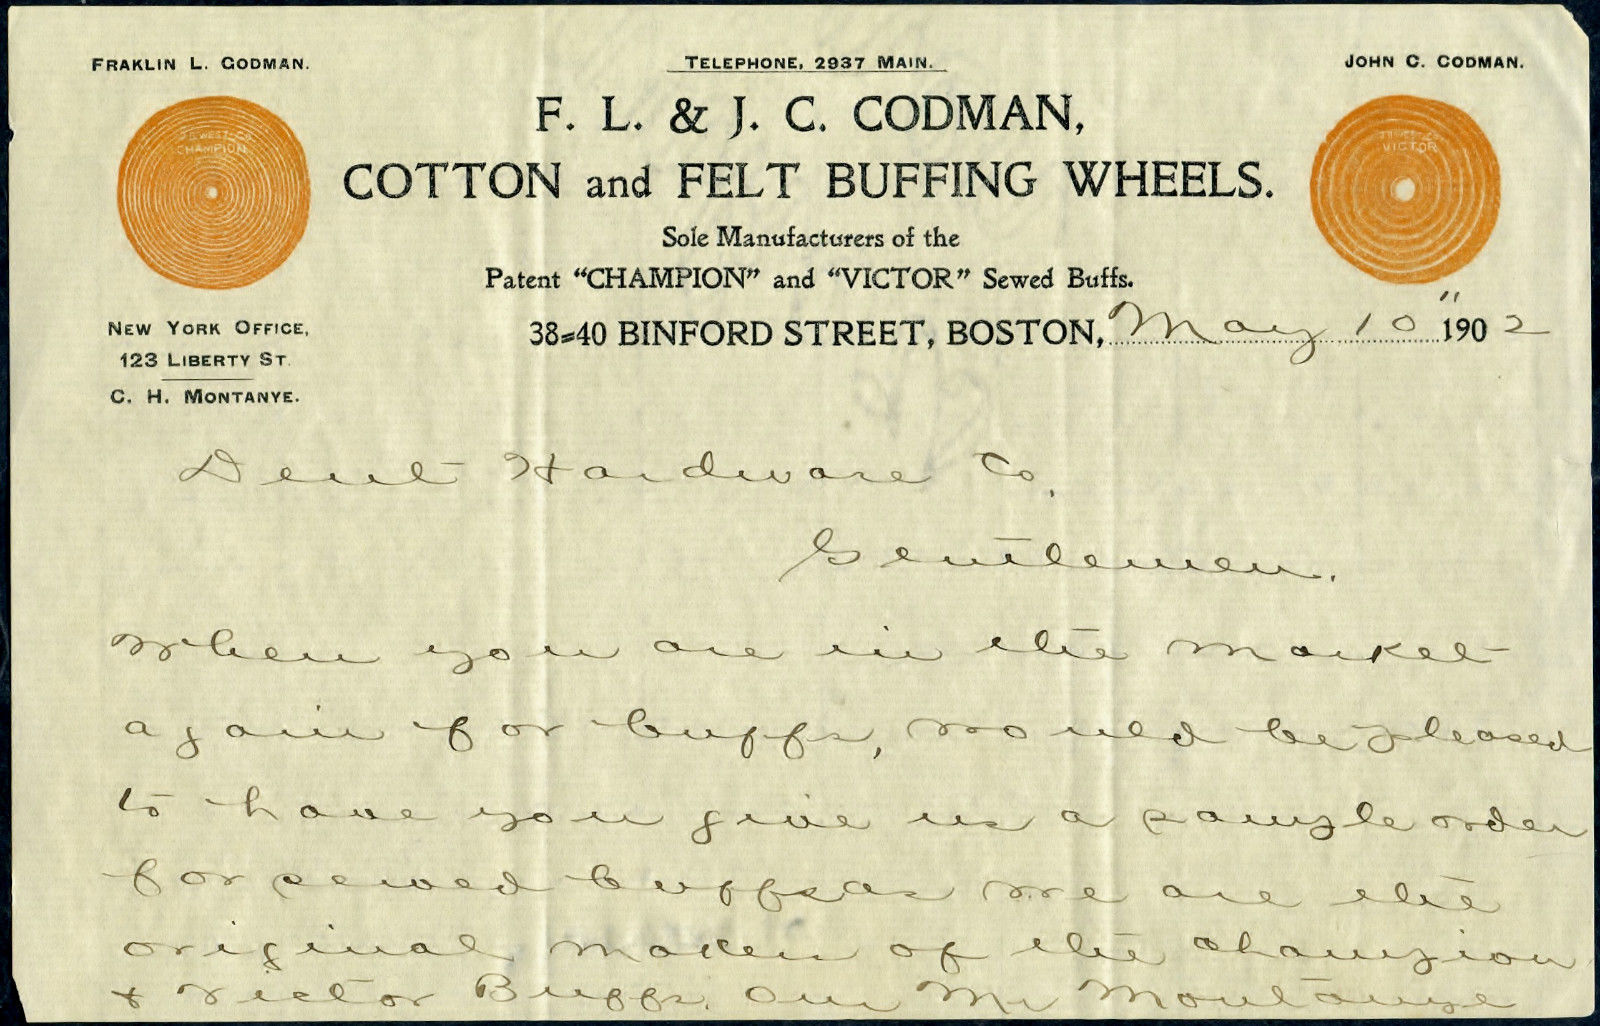 FRAKLIN L. CODMAN.
TELEPHONE, 2937 MAIN.
JOHN C. CODMAN.
F. L. & J. C. CODMAN,
COTTON and FELT BUFFING WHEELS.
Sole Manufacturers of the
Patent "CHAMPION" and "VICTOR" Sewed Buffs.
CHAMPION
VICTOR
38=40 BINFORD STREET, BOSTON, May 10" 1902
NEW YORK OFFICE,
123 LIBERTY ST.
C. H. MONTANYE.
Dent Hardware Co,
Gentlemen.
When you are in the market
again for buffs, would be pleased
to have you give us a sample order
for sewed buffs as we are the
original maker of the Champion
& Victor Buffs. Our Mr Montanye